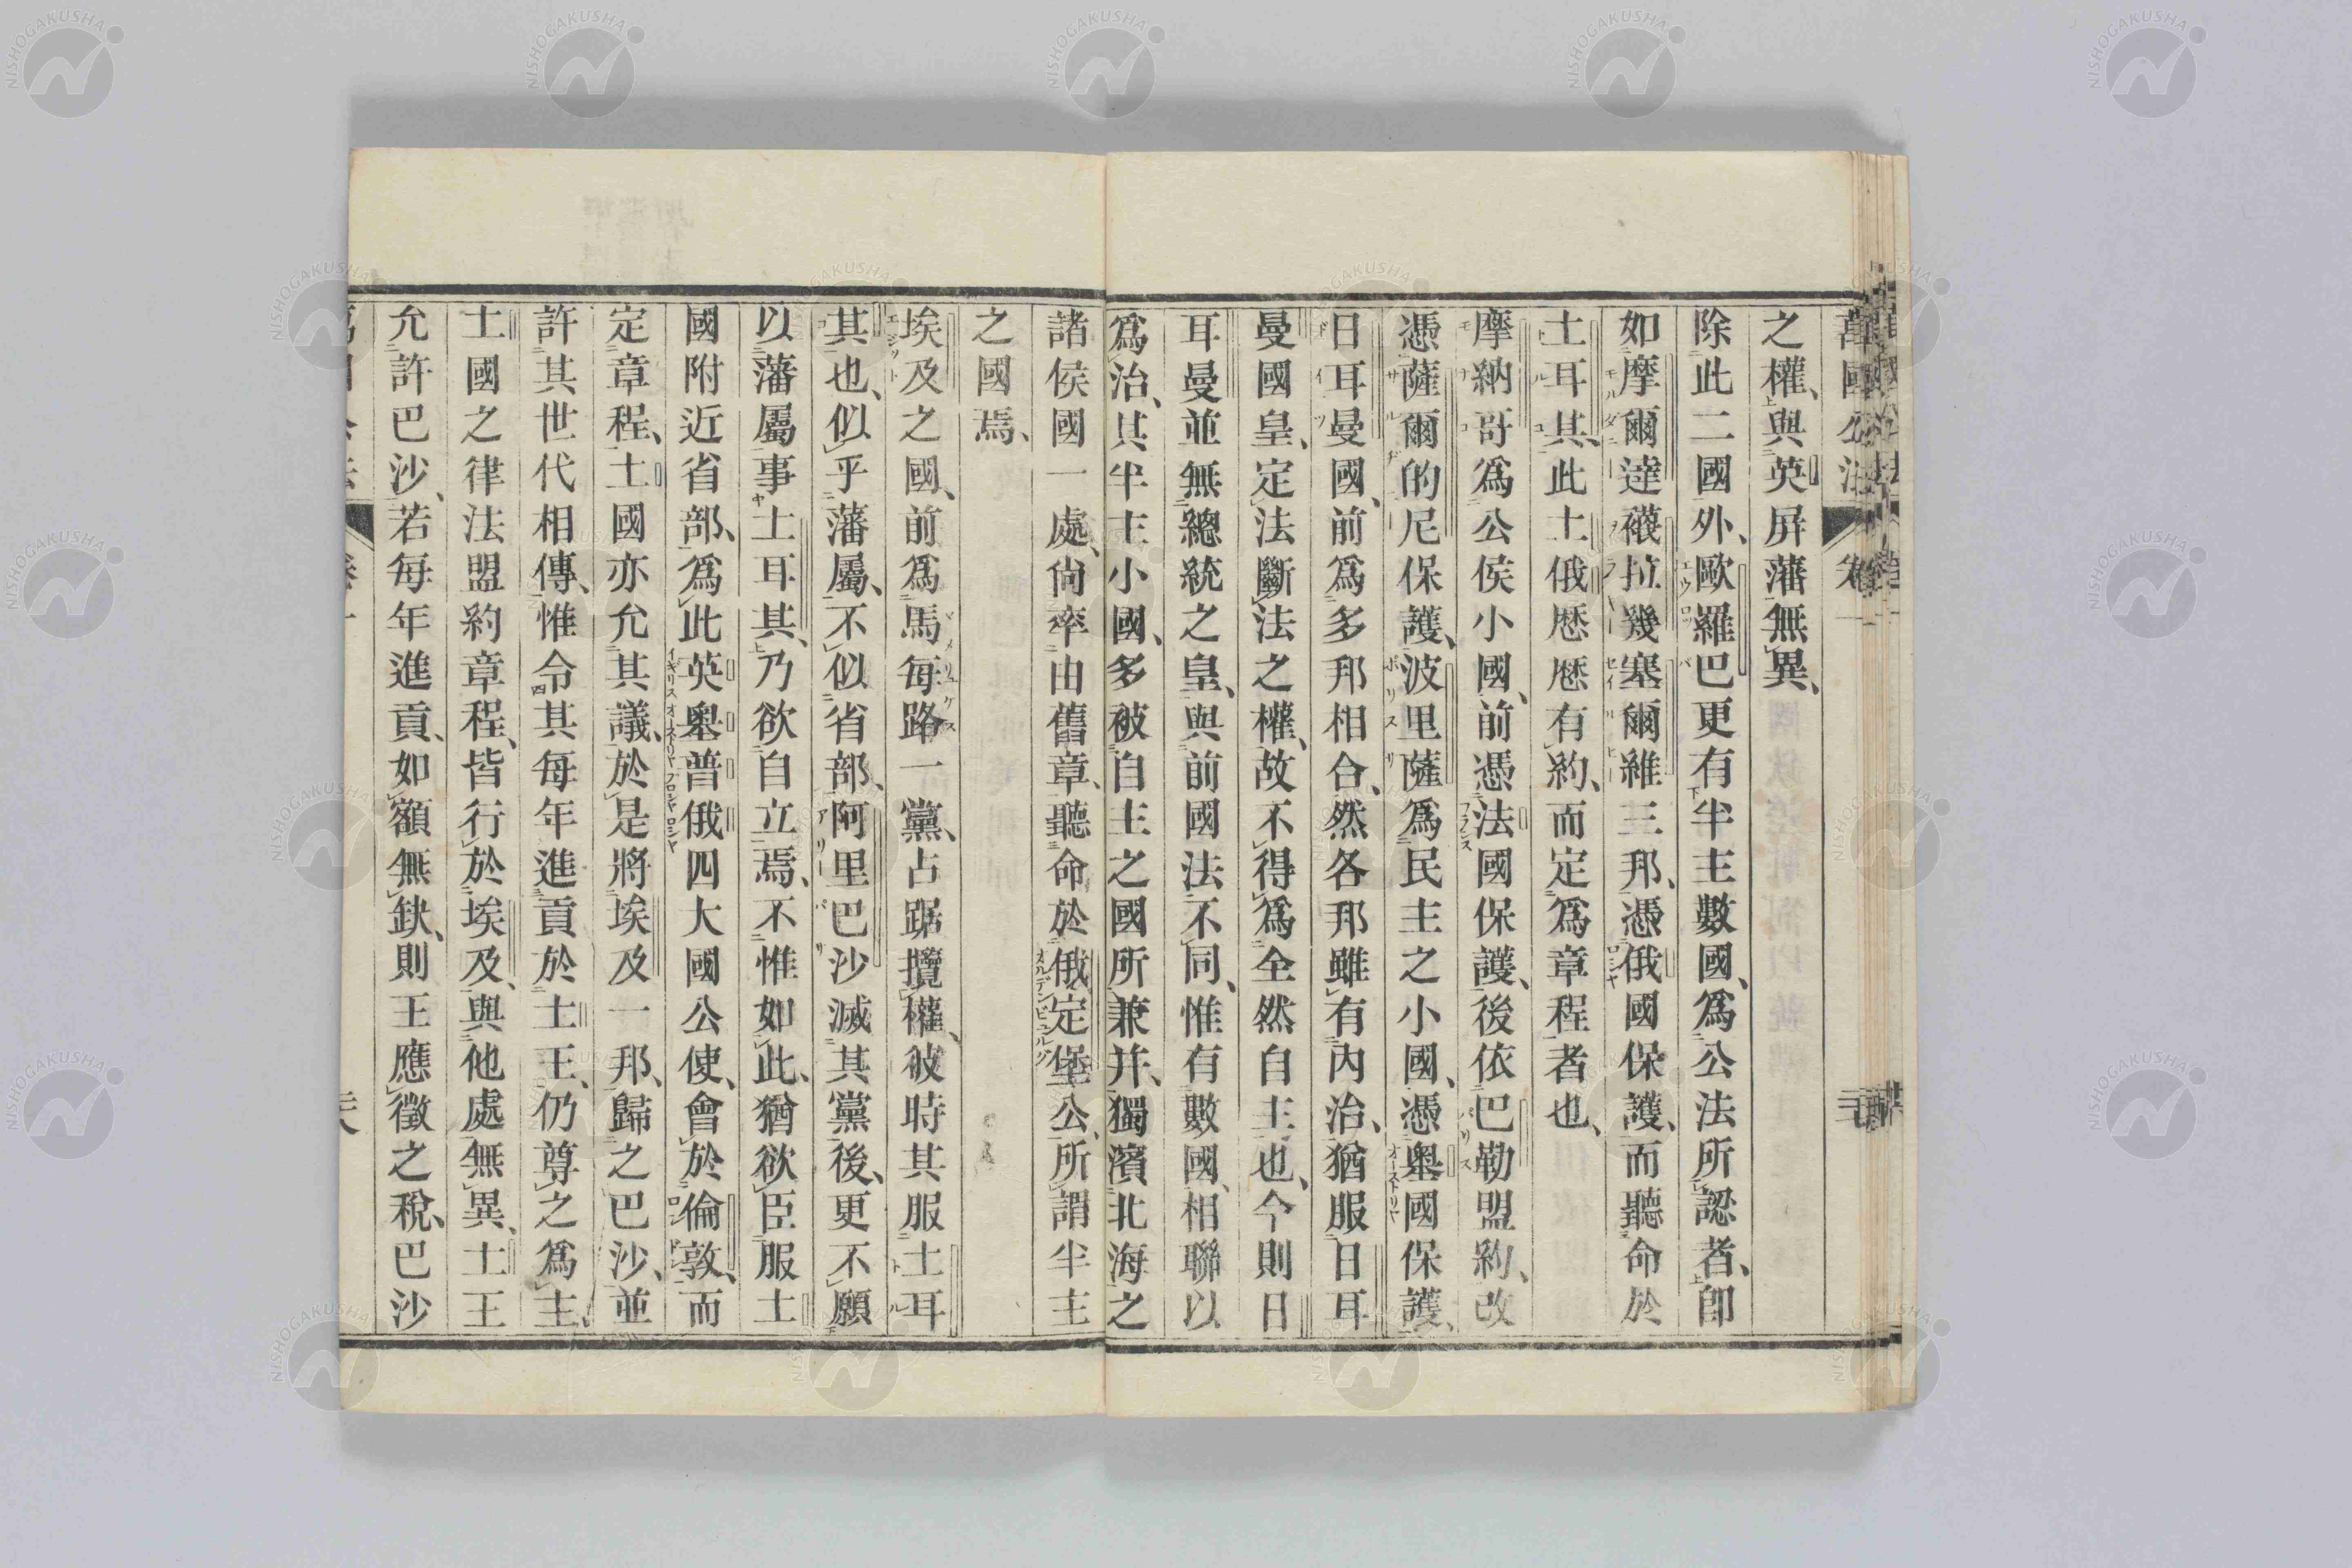 萬國公法 卷一
之權、與英屏藩無異、
除此二國外、歐羅巴更有半主數國、爲公法所認者、卽
如摩爾達襪拉幾塞爾維三邦、憑俄國保護、而聽命於
土耳其、此土俄歷歷有約、而定爲章程者也、
摩納哥爲公侯小國、前憑法國保護、後依巴勒盟約、改
憑薩爾的尼保護、波里薩爲民主之小國、憑奧國保護、
日耳曼國、前爲多邦相合、然各邦雖有內治、猶服日耳
曼國皇、定法斷法之權、故不得爲全然自主也、今則日
耳曼並無總統之皇、與前國法不同、惟有數國、相聯以
爲治、其半主小國、多被自主之國所兼并、獨濱北海之
諸侯國一處、尚率由舊章、聽命於俄定堡公、所謂半主
之國焉、
埃及之國、前爲馬每路一黨、占踞攬權、彼時其服土耳
其也、似乎藩屬、不似省部、阿里巴沙滅其黨後、更不願
以藩屬事土耳其、乃欲自立焉、不惟如此、猶欲臣服土
國附近省部、爲此英奧普俄四大國公使、會於倫敦、而
定章程、土國亦允其議、於是將埃及一邦、歸之巴沙、並
許其世代相傳、惟令其每年進貢於土王、仍尊之爲主、
土國之律法盟約章程、皆行於埃及、與他處無異、土王
允許巴沙、若每年進貢、如額無缺、則王應徵之稅、巴沙